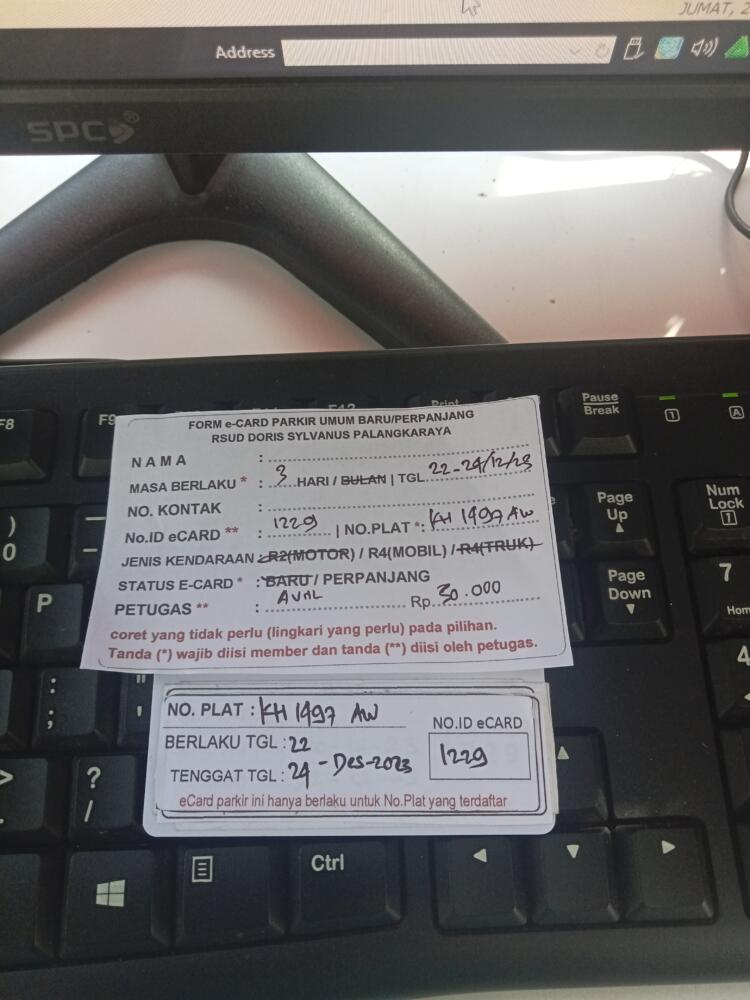 JUMAT, 2
Address
SPC
F8
F9
F12
Print
Pause
Break
1
A
FORM e-CARD PARKIR UMUM BARU/PERPANJANG
RSUD DORIS SYLVANUS PALANGKARAYA
NAMA :
MASA BERLAKU * : 3 HARI / BULAN | TGL 22-24/12/23
NO. KONTAK :
No.ID eCARD ** : 1229 | NO.PLAT *: KH 1497 AW
JENIS KENDARAAN : R2(MOTOR) / R4(MOBIL) / R4(TRUK)
STATUS E-CARD * : BARU / PERPANJANG
PETUGAS ** : AVRIL Rp. 30.000
coret yang tidak perlu (lingkari yang perlu) pada pilihan.
Tanda (*) wajib diisi member dan tanda (**) diisi oleh petugas.
NO. PLAT : KH 1497 AW
NO.ID eCARD
BERLAKU TGL : 22
1229
TENGGAT TGL : 24 - Des-2023
eCard parkir ini hanya berlaku untuk No.Plat yang terdaftar
Page
Up
Num
Lock
1
)
0
P
Page
Down
7
Home
4
:
;
"
'
>
.
?
/
Ctrl